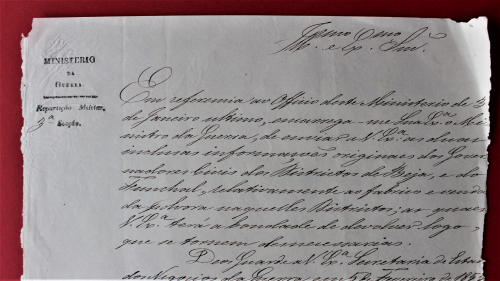 MINISTERIO
DA
GUERRA
Repartição Militar,
3ª Secção.
Illmo e Exmo Snr.
Em referencia ao Officio deste Ministerio de 3
de Janeiro ultimo, encarrega-me Sua Exª o Mi-
nistro da Guerra, de enviar a V. Exª as duas
inclusas informações originaes dos Gover-
nadores Civis dos Districtos de Beja, e do
Funchal, relativamente ao fabrico e venda
da polvora naquelles Districtos; as quaes
V. Exª terá a bondade de devolver logo
que se tornem desnecessarias.
Deos Guarde a V. Exª Secretaria de Esta-
dos Negocios da Guerra em 5 de Fevereiro de